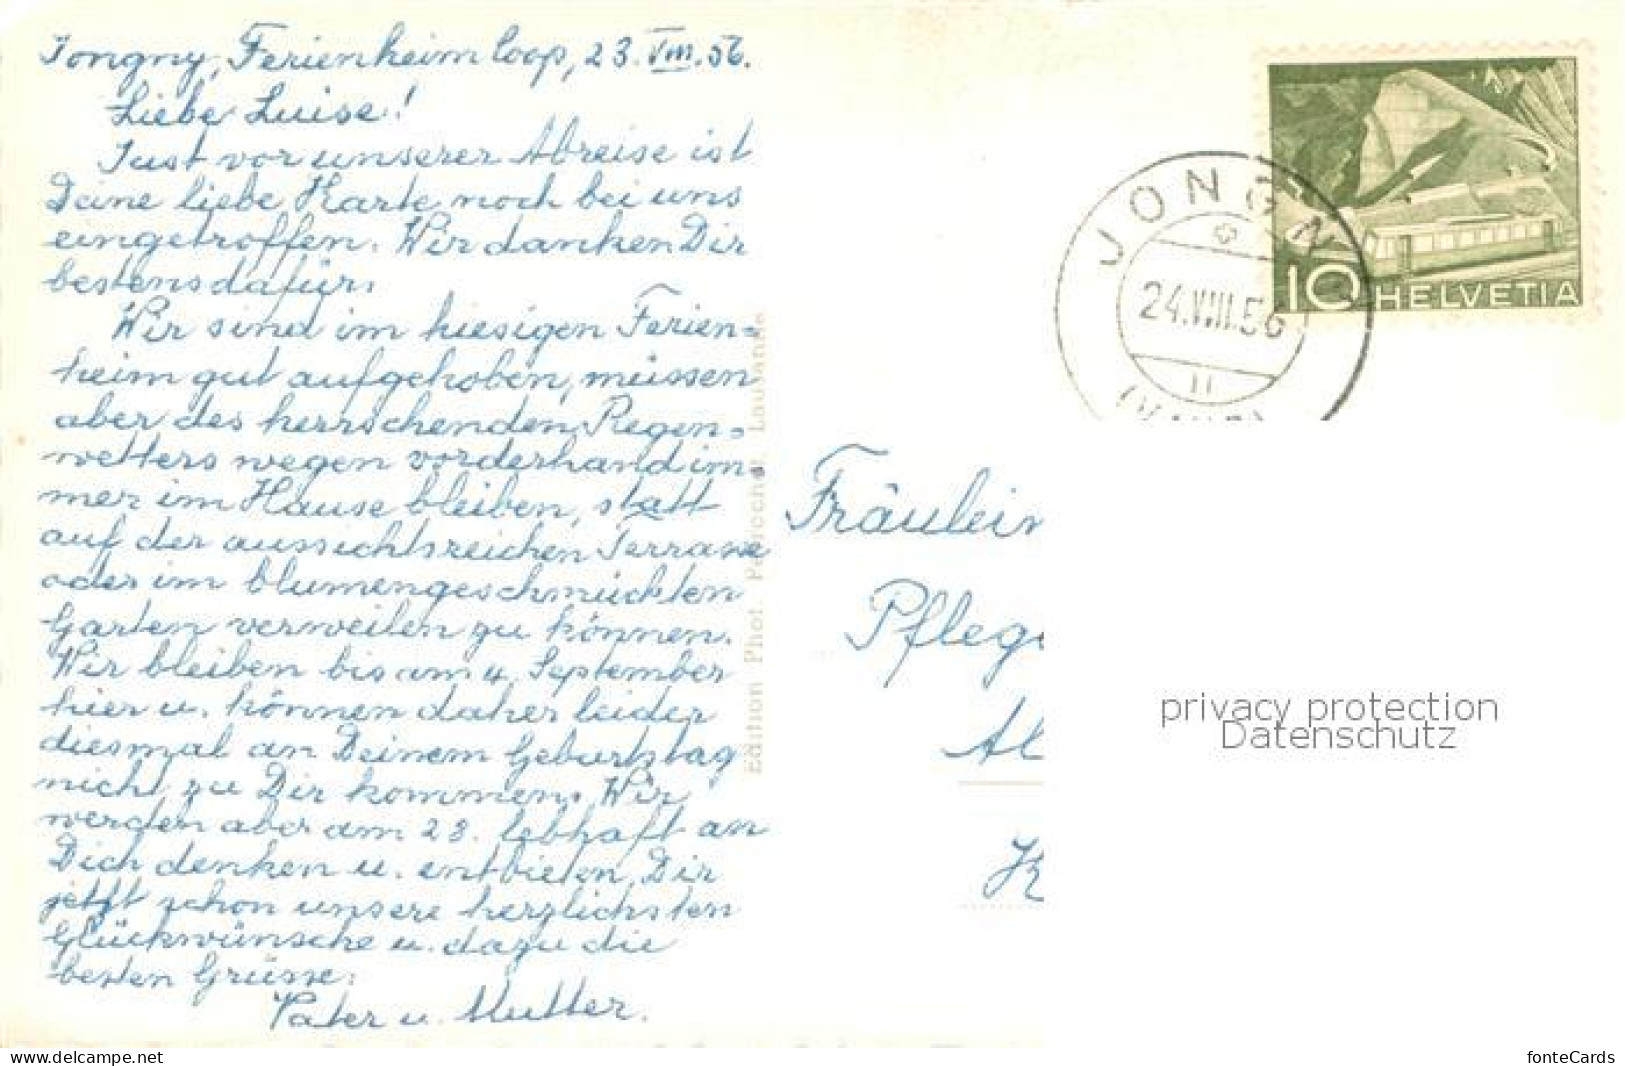 Jongny, Ferienheim Coop, 23. VIII. 56.
Liebe Luise!
Just vor unserer Abreise ist
Deine liebe Karte noch bei uns
eingetroffen. Wir danken Dir
bestens dafür.
Wir sind im hiesigen Ferien=
heim gut aufgehoben, müssen
aber des herrschenden Regen=
wetters wegen vorderhand im
mer im Hause bleiben, statt
auf der aussichtsreichen Terrasse
oder im blumengeschmückten
Garten verweilen zu können.
Wir bleiben bis am 4. September
hier u. können daher leider
diesmal an Deinem Geburtstag
nicht zu Dir kommen. Wir
werden aber am 28. lebhaft an
Dich denken u. entbieten Dir
jetzt schon unsere herzlichsten
Glückwünsche u. dazu die
besten Grüsse:
Vater u. Mutter.
Edition Phot. Perrochet Lausanne
JONGN
24.VIII.56
10 HELVETIA
Fräulein
Pflege
Al
K
privacy protection
Datenschutz
www.delcampe.net
fonteCards